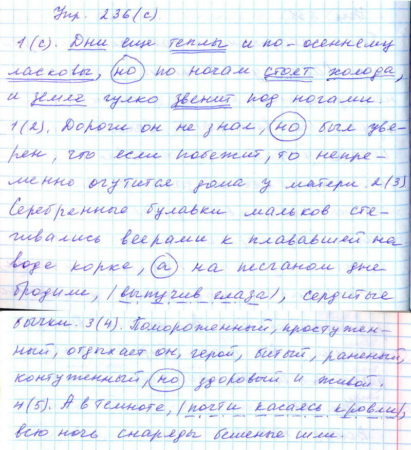 Упр. 236(с)
1(с). Дни еще теплы и по-осеннему
ласковы, но по ночам стоят холода,
и земля гулко звенит под ногами.
1(2). Дороги он не знал, но был уве-
рен, что если побежит, то непре-
менно очутится дома у матери. 2(3)
Серебренные булавки мальков стя-
гивались веерами к плававшей на
воде корке, а на песчаном дне
бродили, (выпучив глаза), сердитые
бычки. 3(4). Помороженный, простужен-
ный, отдыхает он, герой, битый, раненый,
контуженный, но здоровый и живой.
4(5). А в темноте, (почти касаясь кровли),
всю ночь снаряды бешеные шли.